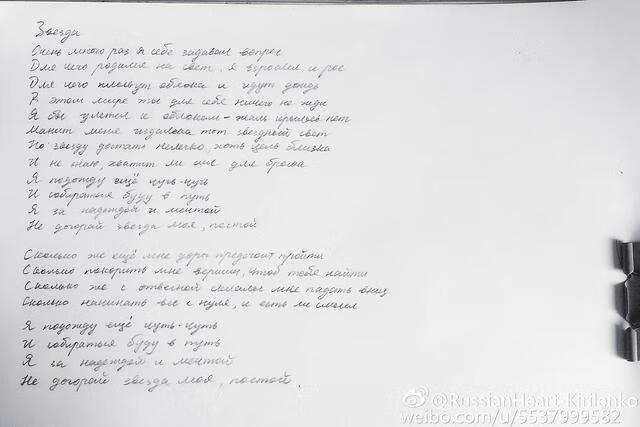 Звезда
Очень много раз я себе задавал вопрос
Для чего родился на свет, я взрослел и рос
Для чего плывут облака и идут дожди
В этом мире ты для себя ничего не жди
Я бы улетел к облакам - жаль крыльев нет
Манит меня издалека тот звездный свет
Но звезду достать нелегко, хоть цель близка
И не знаю, хватит ли сил для броска
Я подожду ещё чуть-чуть
И собираться буду в путь
Я за надеждой и мечтой
Не догорай звезда моя, постой
Сколько же ещё мне дорог предстоит пройти
Сколько покорить мне вершин, чтоб тебя найти
Сколько же с отвесной скалы мне падать вниз
Сколько начинать все с нуля, и есть ли смысл
Я подожду ещё чуть-чуть
И собираться буду в путь
Я за надеждой и мечтой
Не догорай звезда моя, постой.
@RussianHeart-Kirilenko
weibo.com/u/5537999582